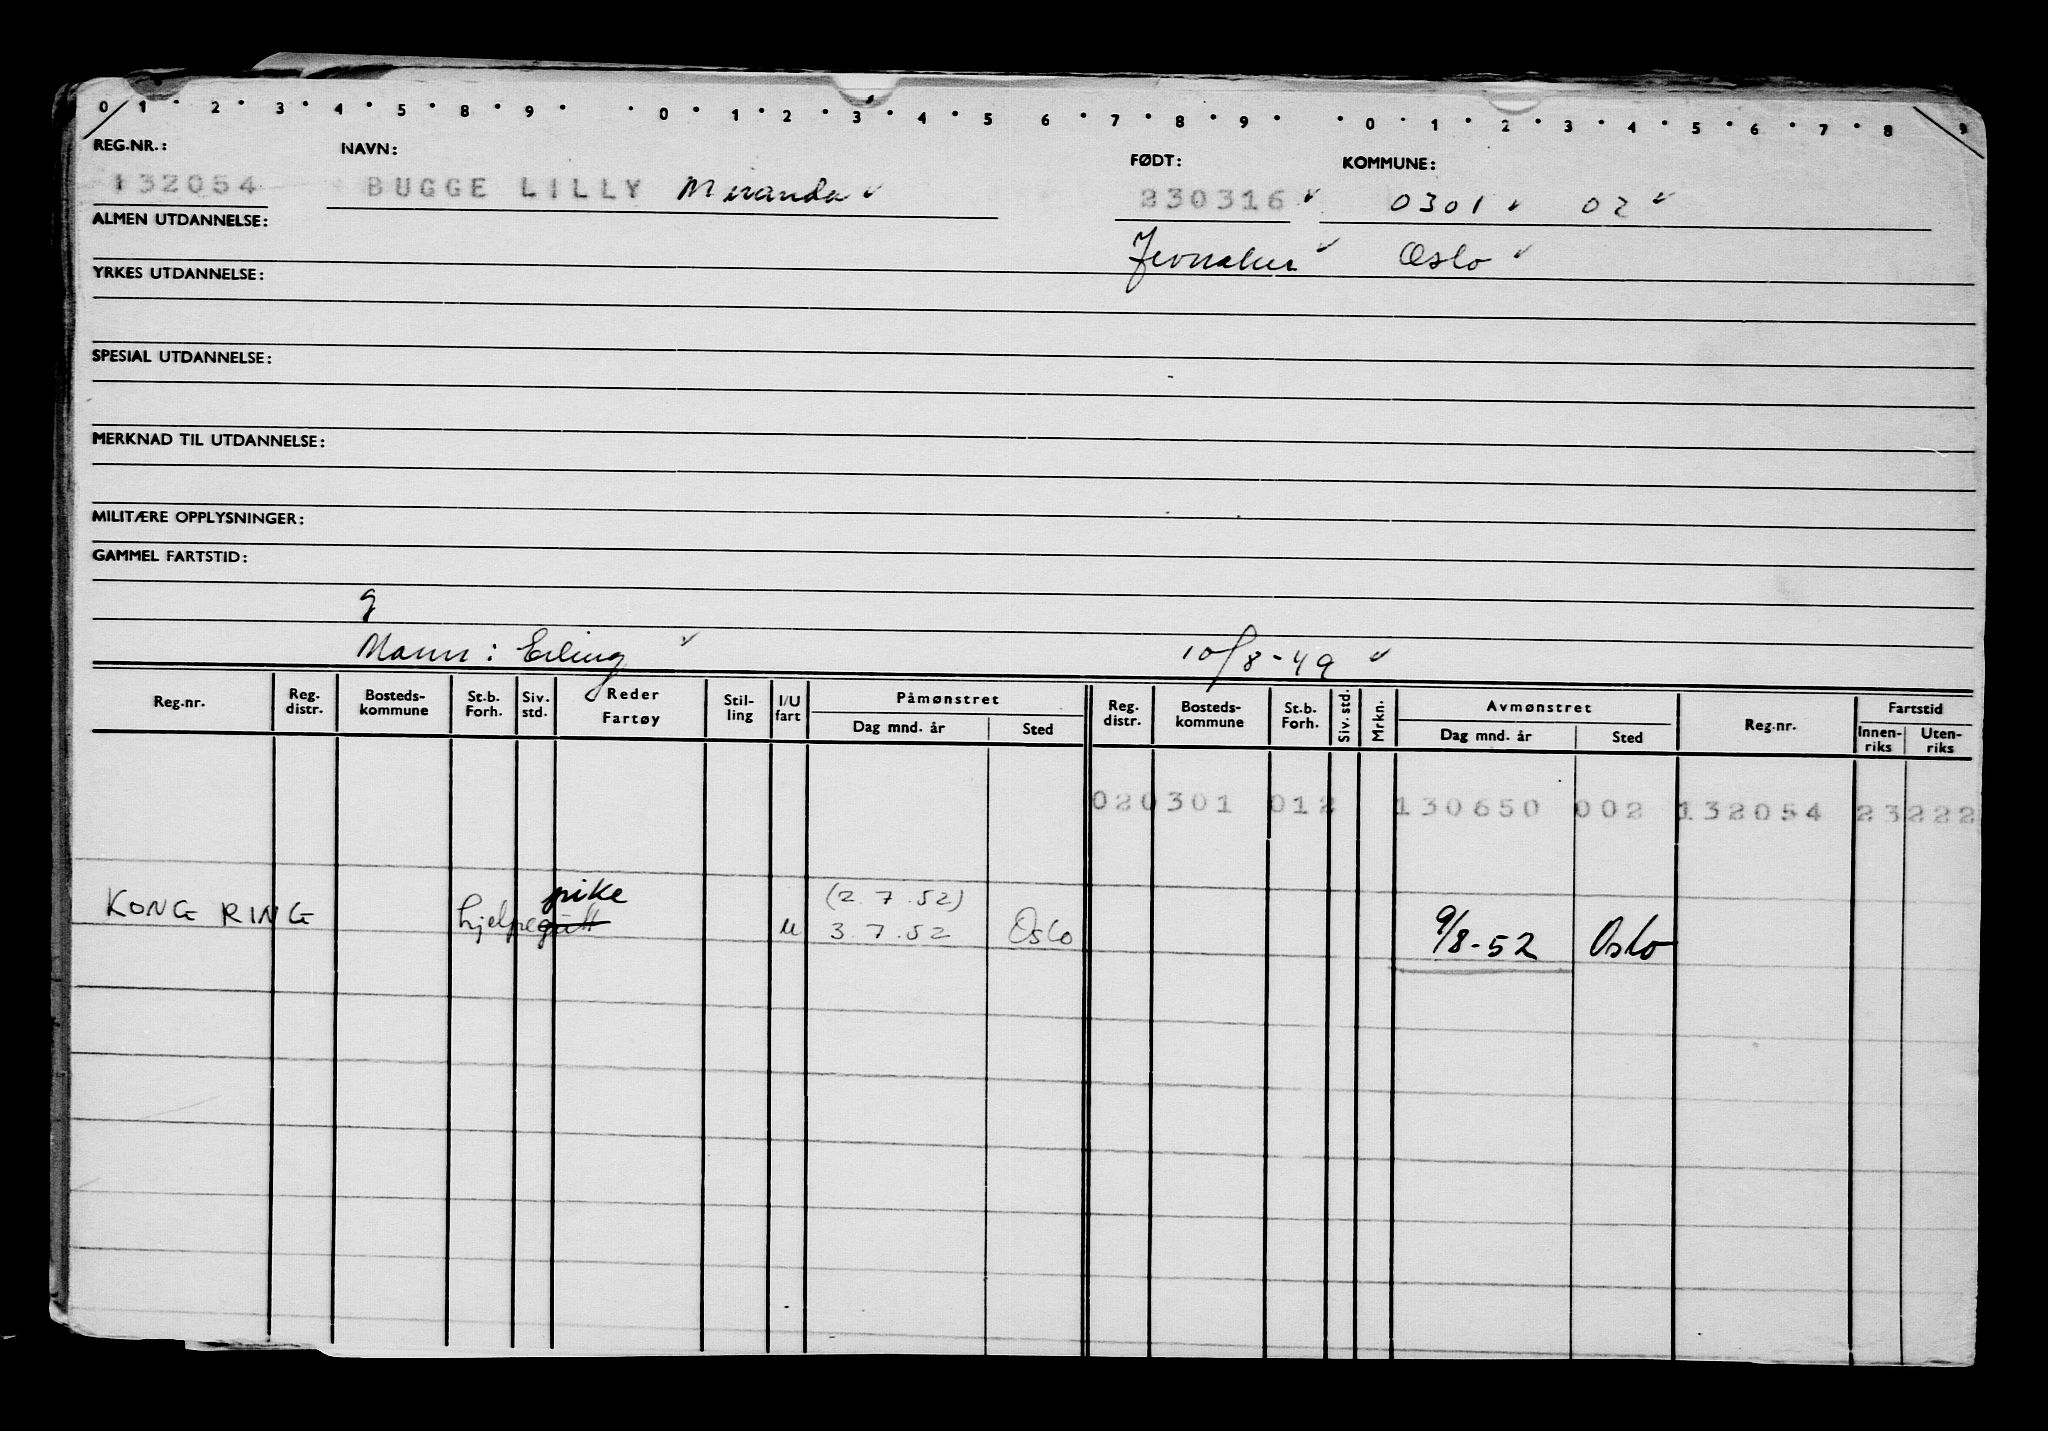 0 1 2 3 4 5 8 9 0 1 2 3 4 5 6 7 8 9 0 1 2 3 4 5 6 7 8 9
REG.NR.: NAVN: FØDT: KOMMUNE:
132054 BUGGE LILLY Miranda 230316 0301 02
ALMEN UTDANNELSE: Jevnaker Oslo
YRKES UTDANNELSE:
SPESIAL UTDANNELSE:
MERKNAD TIL UTDANNELSE:
MILITÆRE OPPLYSNINGER:
GAMMEL FARTSTID:
g
Mann: Erling 10/8-49
Reg.nr. Reg. distr. Bosteds-kommune St.b. Forh. Siv. std. Reder Fartøy Stil-ling I/U fart Påmønstret Dag mnd. år Sted Reg. distr. Bosteds-kommune St.b. Forh. Siv. std. Mrkn. Avmønstret Dag mnd. år Sted Reg.nr. Fartstid Innen-riks Uten-riks
020301 012 130650 002 132054 23222
pike (2.7.52)
KONG RING hjelpegutt u 3.7.52 Oslo 9/8-52 Oslo